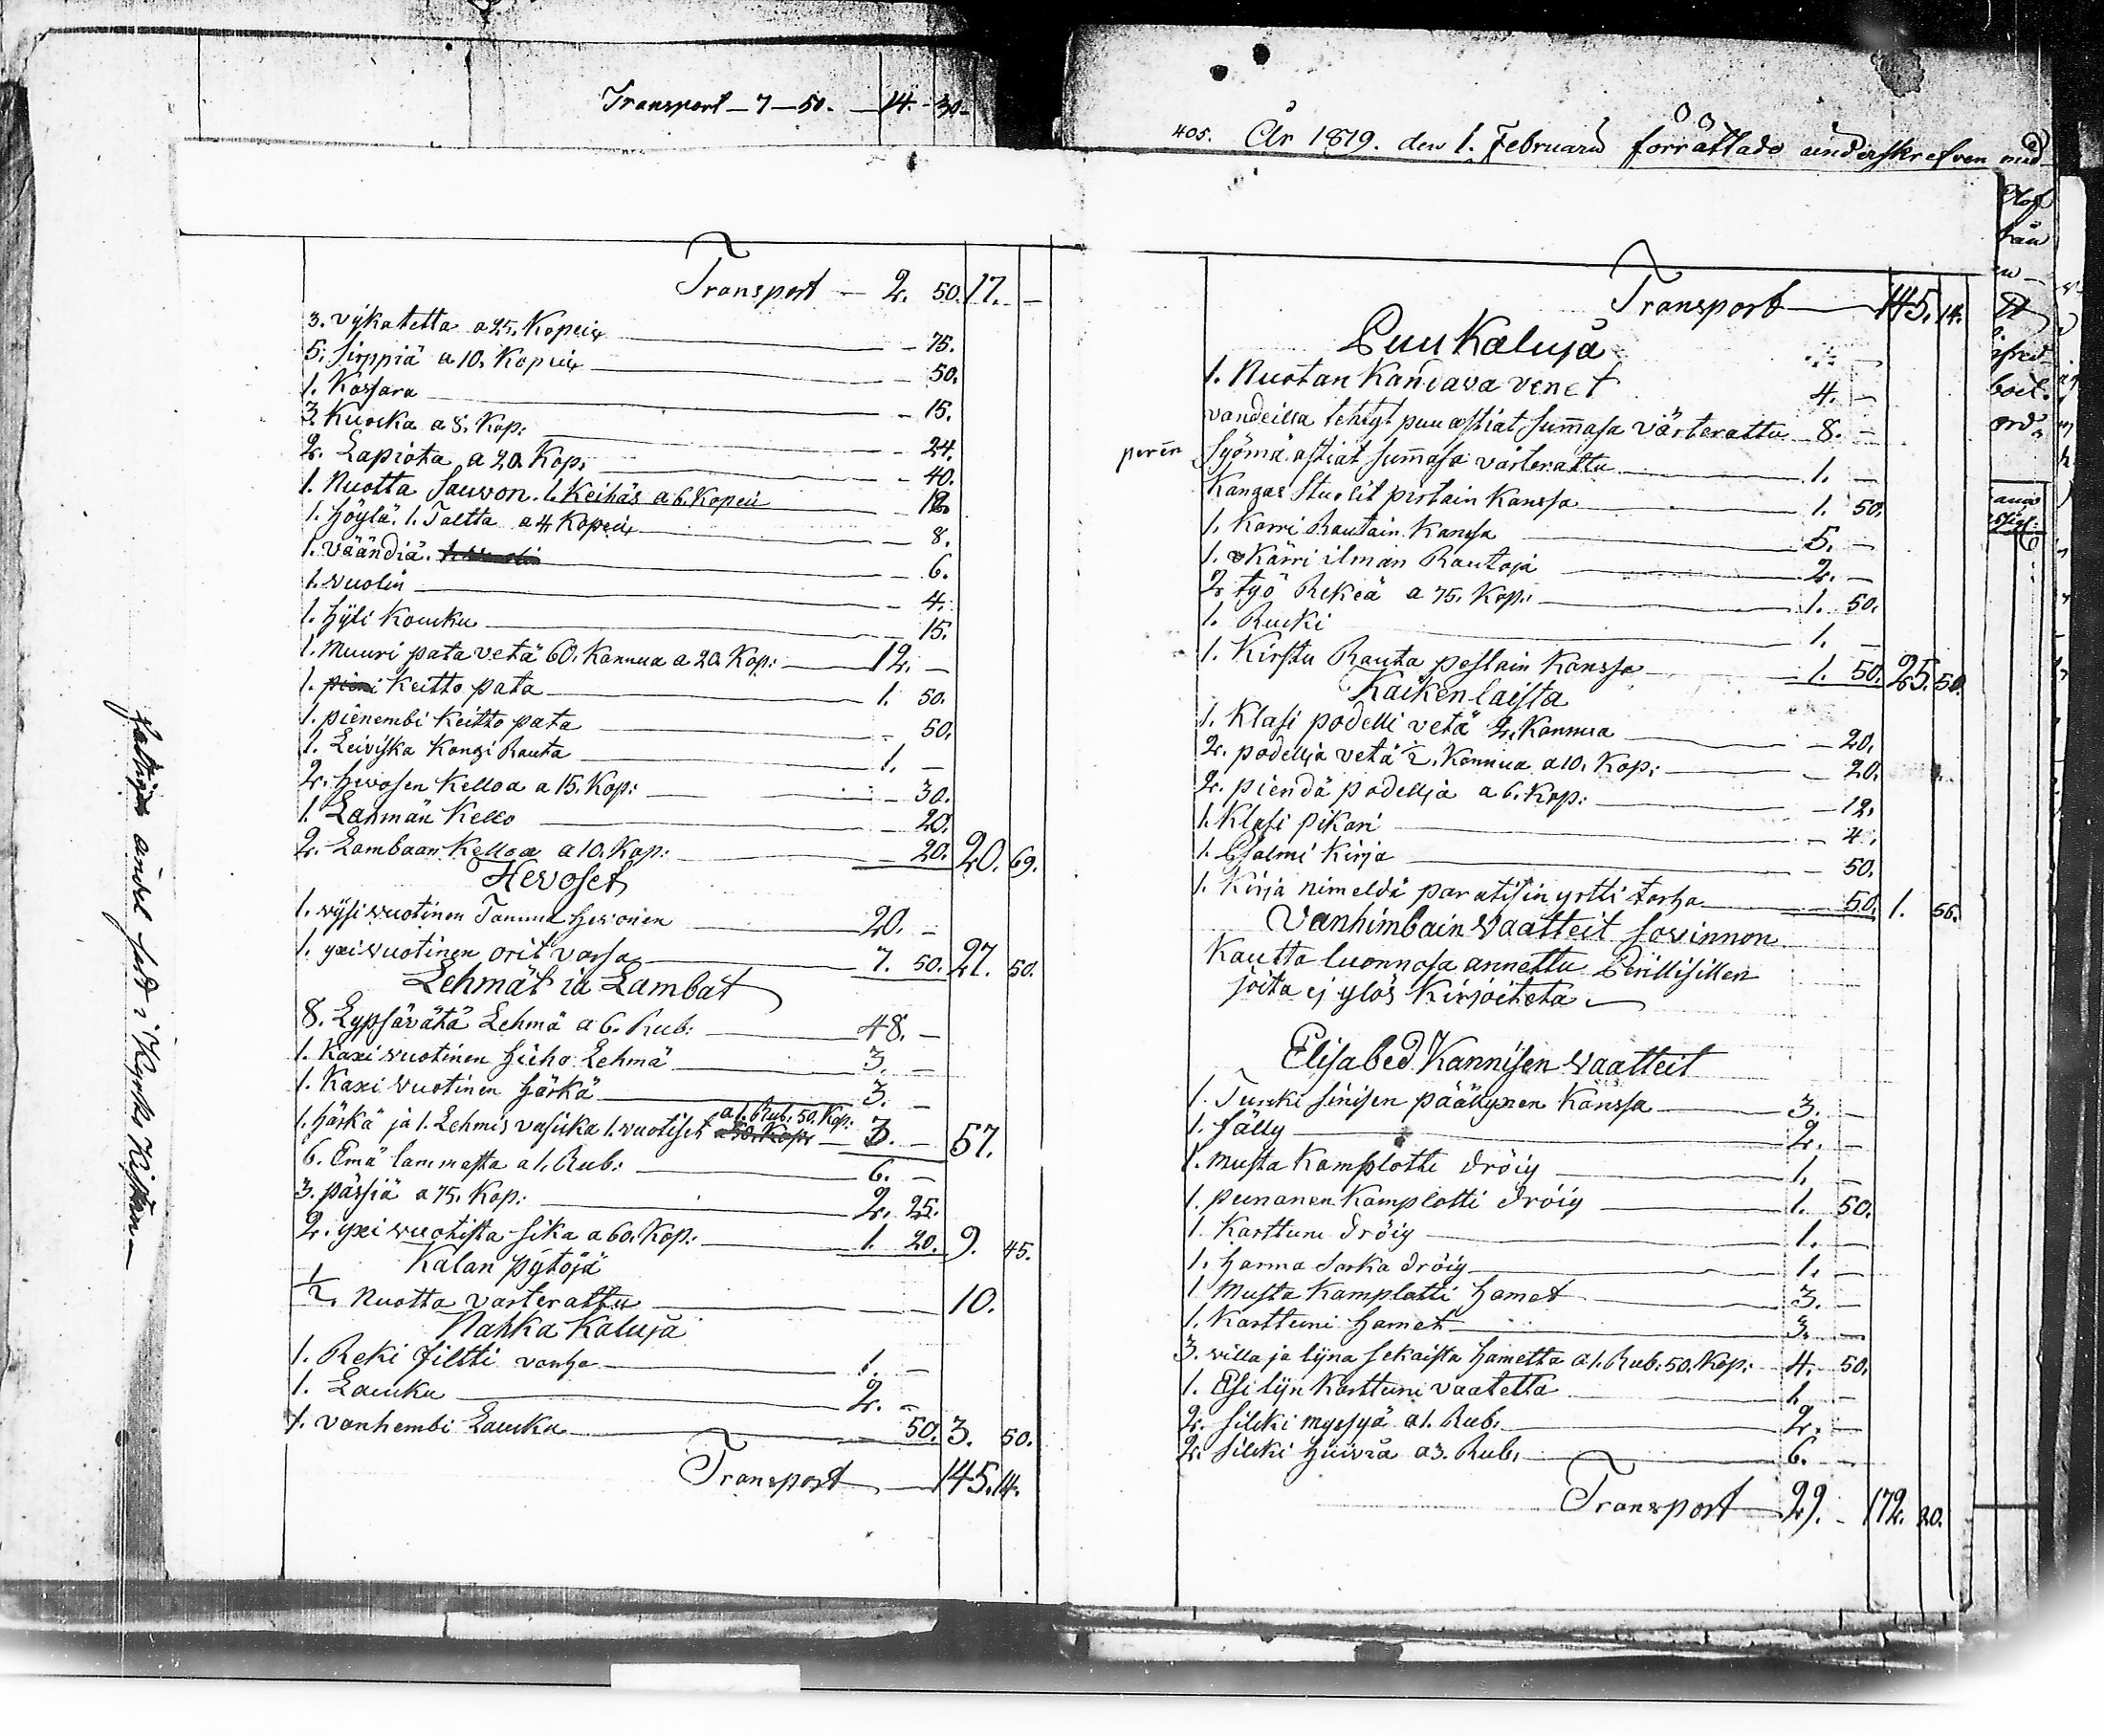 Transport - 7 - 50. - 14. - 30.
Transport - 2. 50. 17. -
3. vijkatetta a 25. Kopeix - 75.
5. sirppiä a 10. Kopeix - 50.
1. Kassara - 15.
3. Kuocka a 8. Kop: - 24.
2. Lapiota a 20. Kop: - 40.
1. Nuotta Sauvon. 1. Keihäs a 6. Kopeix 12.
1. höylä. 1. Taltta a 4 Kopeix - 8.
1. väändiä. - 6.
1. vuolin - 4.
1. hyli Koucku 15.
1. Muuri pata vetä 60. Kannua a 20. Kop: 12. -
1. pieni Keitto pata 1. 50.
1. pienembi Keitto pata - 50.
1. Leiviskä Kangi Rauta 1. -
2. hevosen Kelloa a 15. Kop: - 30.
1. Lahmän Kello - 20.
2. Lambaan Kelloa a 10. Kop: - 20. 20. 69.
Hevoset
1. wijsi wuotinen Tamma hevonen 20. -
1. yxi wuotinen orit varsa 7. 50. 27. 50.
Lehmät ja Lambat
8. Lypsävätä Lehmä a 6. Rub: 48. -
1. Kaxi wuotinen hieho Lehmä 3. -
1. Kaxi wuotinen härkä 3. -
1. härkä ja 1. Lehmis vasicka 1. wuotiset a 1. Rub: 50. Kop: 3. - 57.
6. Emä lammasta a 1. Rub: 6. -
3. pässiä a 75. Kop: 2. 25.
2. yxi wuotista sika a 60. Kop: 1. 20. 9. 45.
Kalan pytöjä
1/2. Nuotta varterattu 10.
Nahka Kaluja
1. Reki filtti vanha 1. -
1. Laucku 2. -
1. vanhembi Laucku 50. 3. 50.
Transport 145. 14.
405. År 1819. den 1. Februarii förrättade underskrefven
Transport 145. 14.
Puu Kaluja
1. Nuotan Kandava venet 4. -
vandeilla tehdyt puu astiat summasa värterattu 8. -
Syömä astiat summasa värterattu 1. -
Kangas Stuolit pirtain Kanssa 1. 50.
1. Karri Rautain Kanssa 5. -
1. Kärri ilman Rautoja 2. -
2 työ Rekeä a 75. Kop: 1. 50.
1. Rucki 1. -
1. Kirstu Rauta peslain Kanssa 1. 50. 25. 50.
Kaikenlaista
1. Klasi podelli vetä 2. Kannua - 20.
2. podellja vetä 1/2. Kannua a 10. Kop: - 20.
2. piendä podellja a 6. Kop: - 12.
1. Klasi pikari - 4.
1. Psalmi Kirja - 50.
1. Kirja nimeldä paratisin yrtti tarha 50. 1. 56.
Vanhimbain Vaatteit sovinnon
Kautta luonnosa annettu Perillisillen
joita ej ylös Kirjoiteta
Elisabed Kannisen Waatteit
1. Turcki sinisen päällyxen Kanssa 3. -
1. fälly 2. -
1. musta Kamplotti dröig 1. -
1. punanen Kamplotti dröig 1. 50.
1. Karttuni dröig 1. -
1. harma sarka dröig 1. -
1. Musta Kamplotti hamet 3. -
1. Karttuni hamet 3. -
3. villa ja lijna sekaista hametta a 1. Rub: 50. Kop: 4. 50.
1. Esi lijn Karttuni vaatetta 1. -
2. silcki myssyä a 1. Rub. 2. -
2. silcki huivia a 3. Rub. 6. -
Transport 29. - 172. 20.